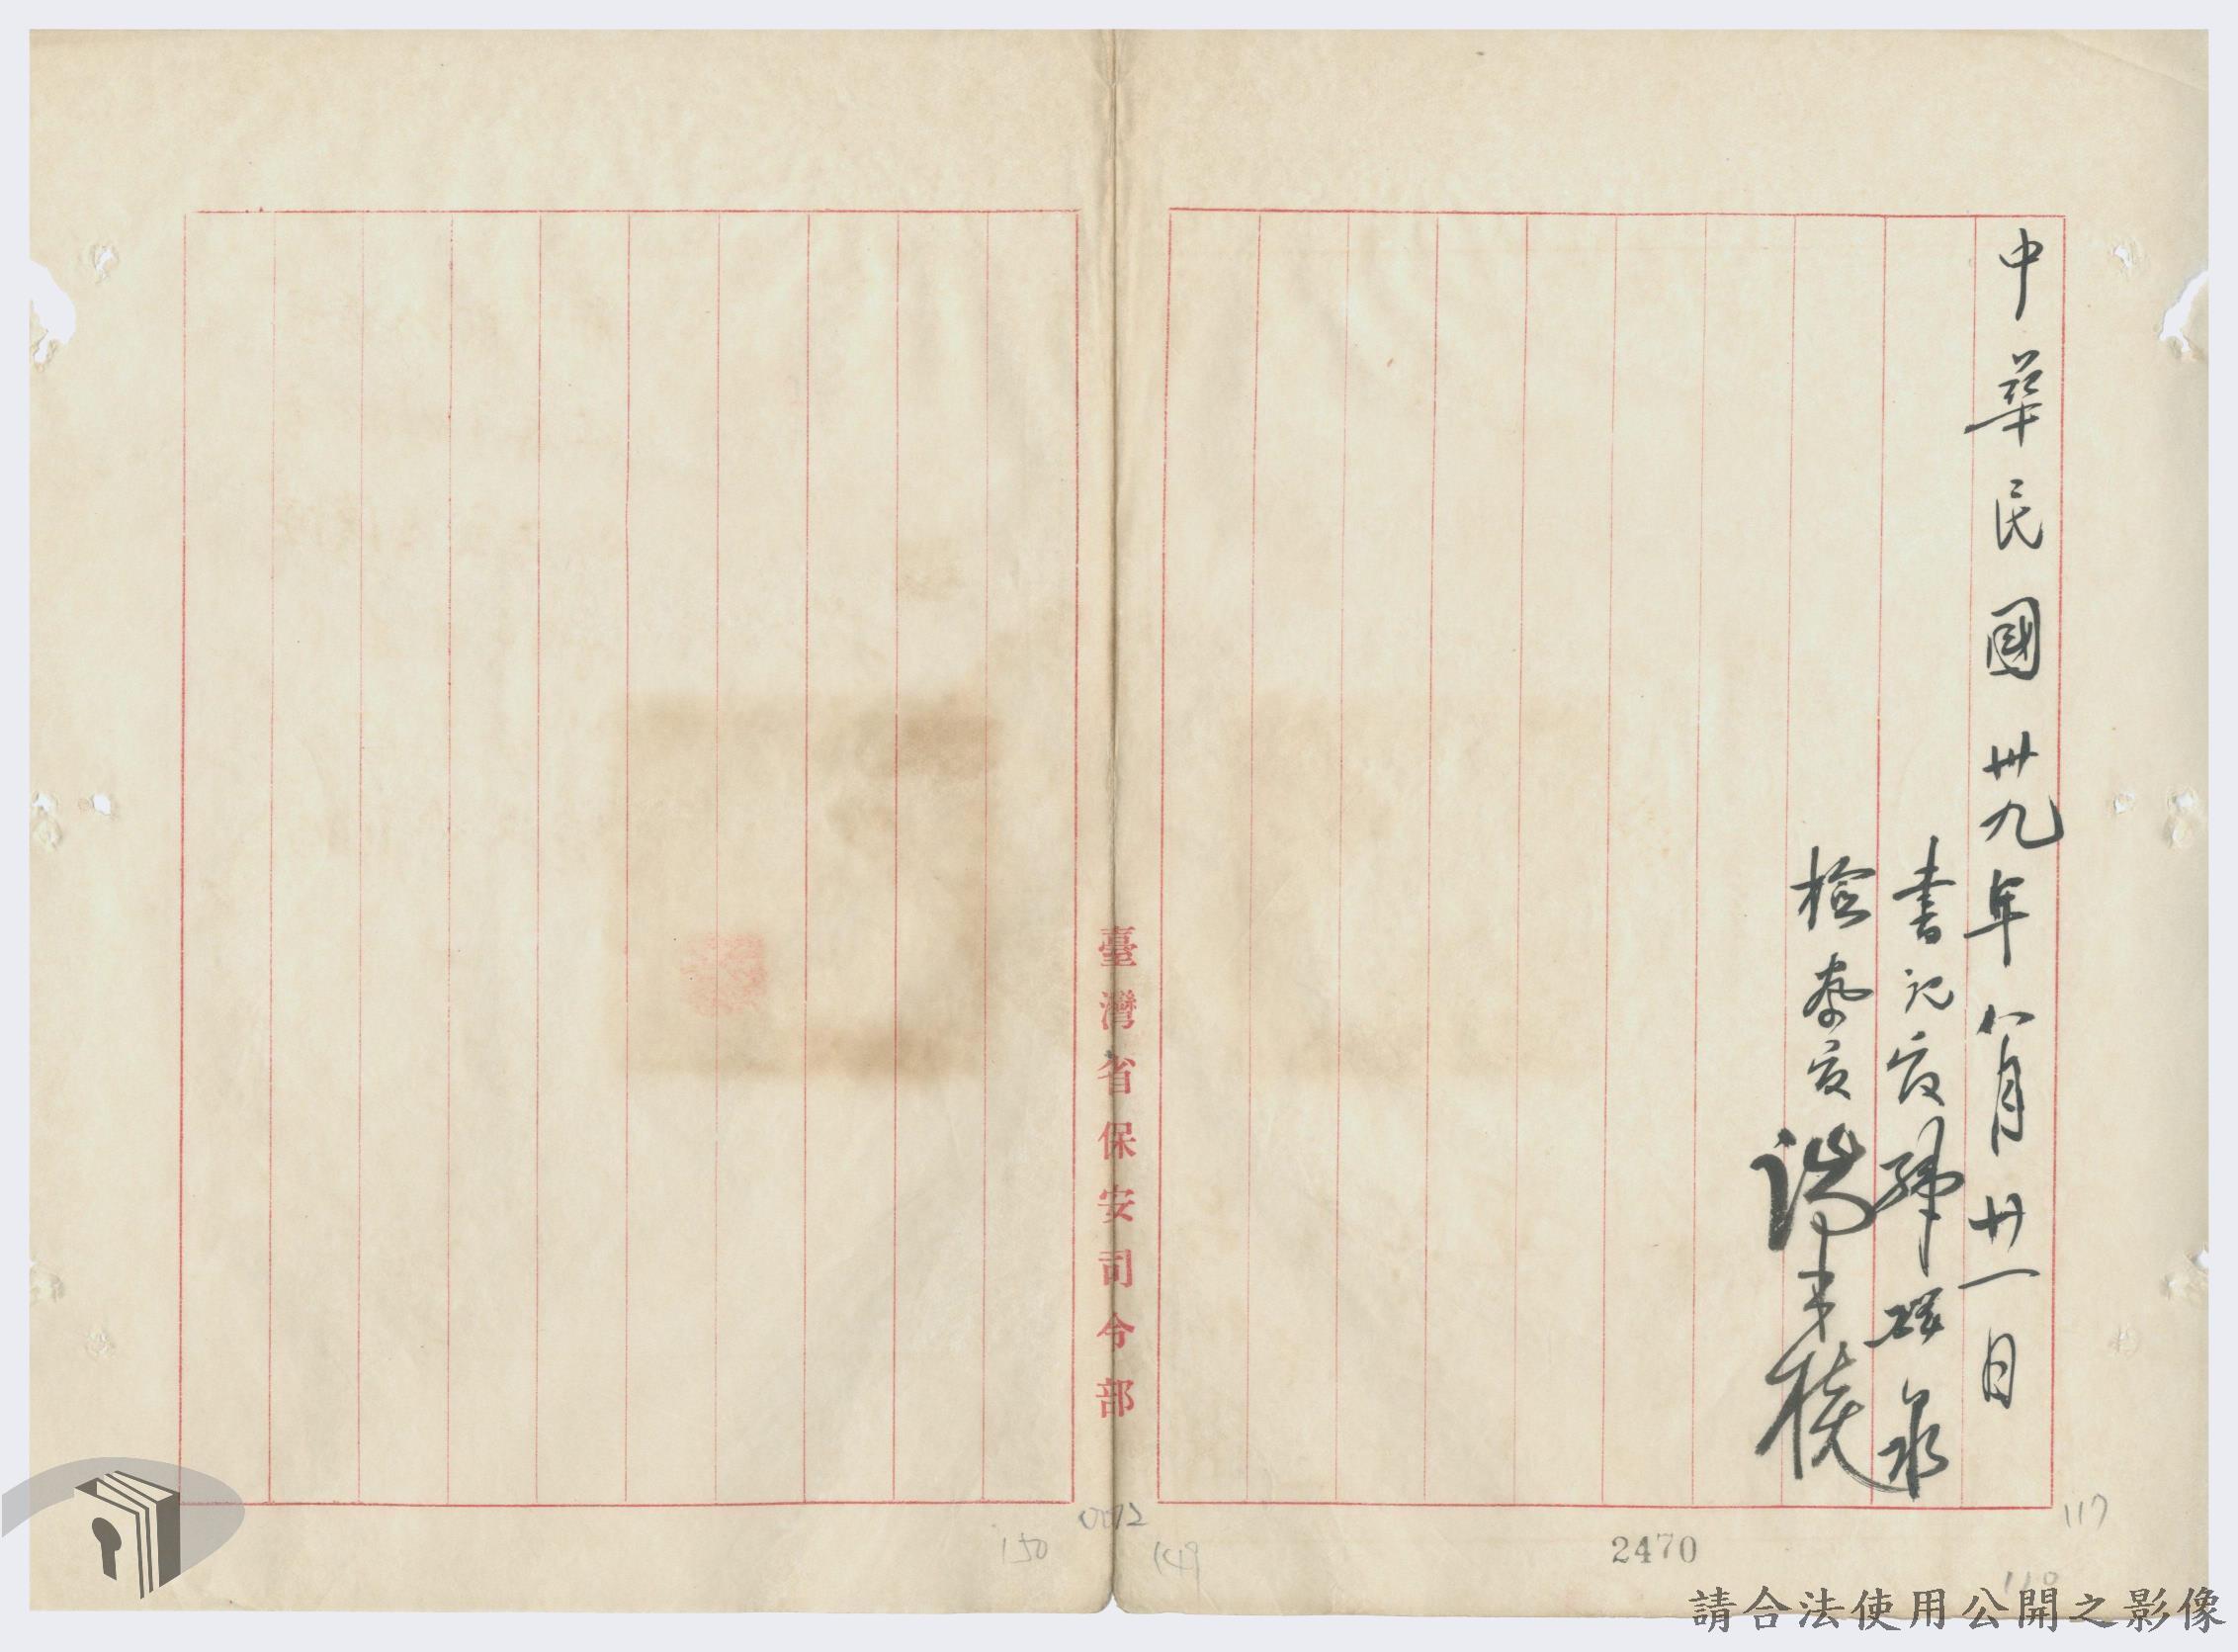 中華民國卅九年八月廿一日
書記官
檢察官
臺灣省保安司令部
0072
150
149
2470
117
請合法使用公開之影像